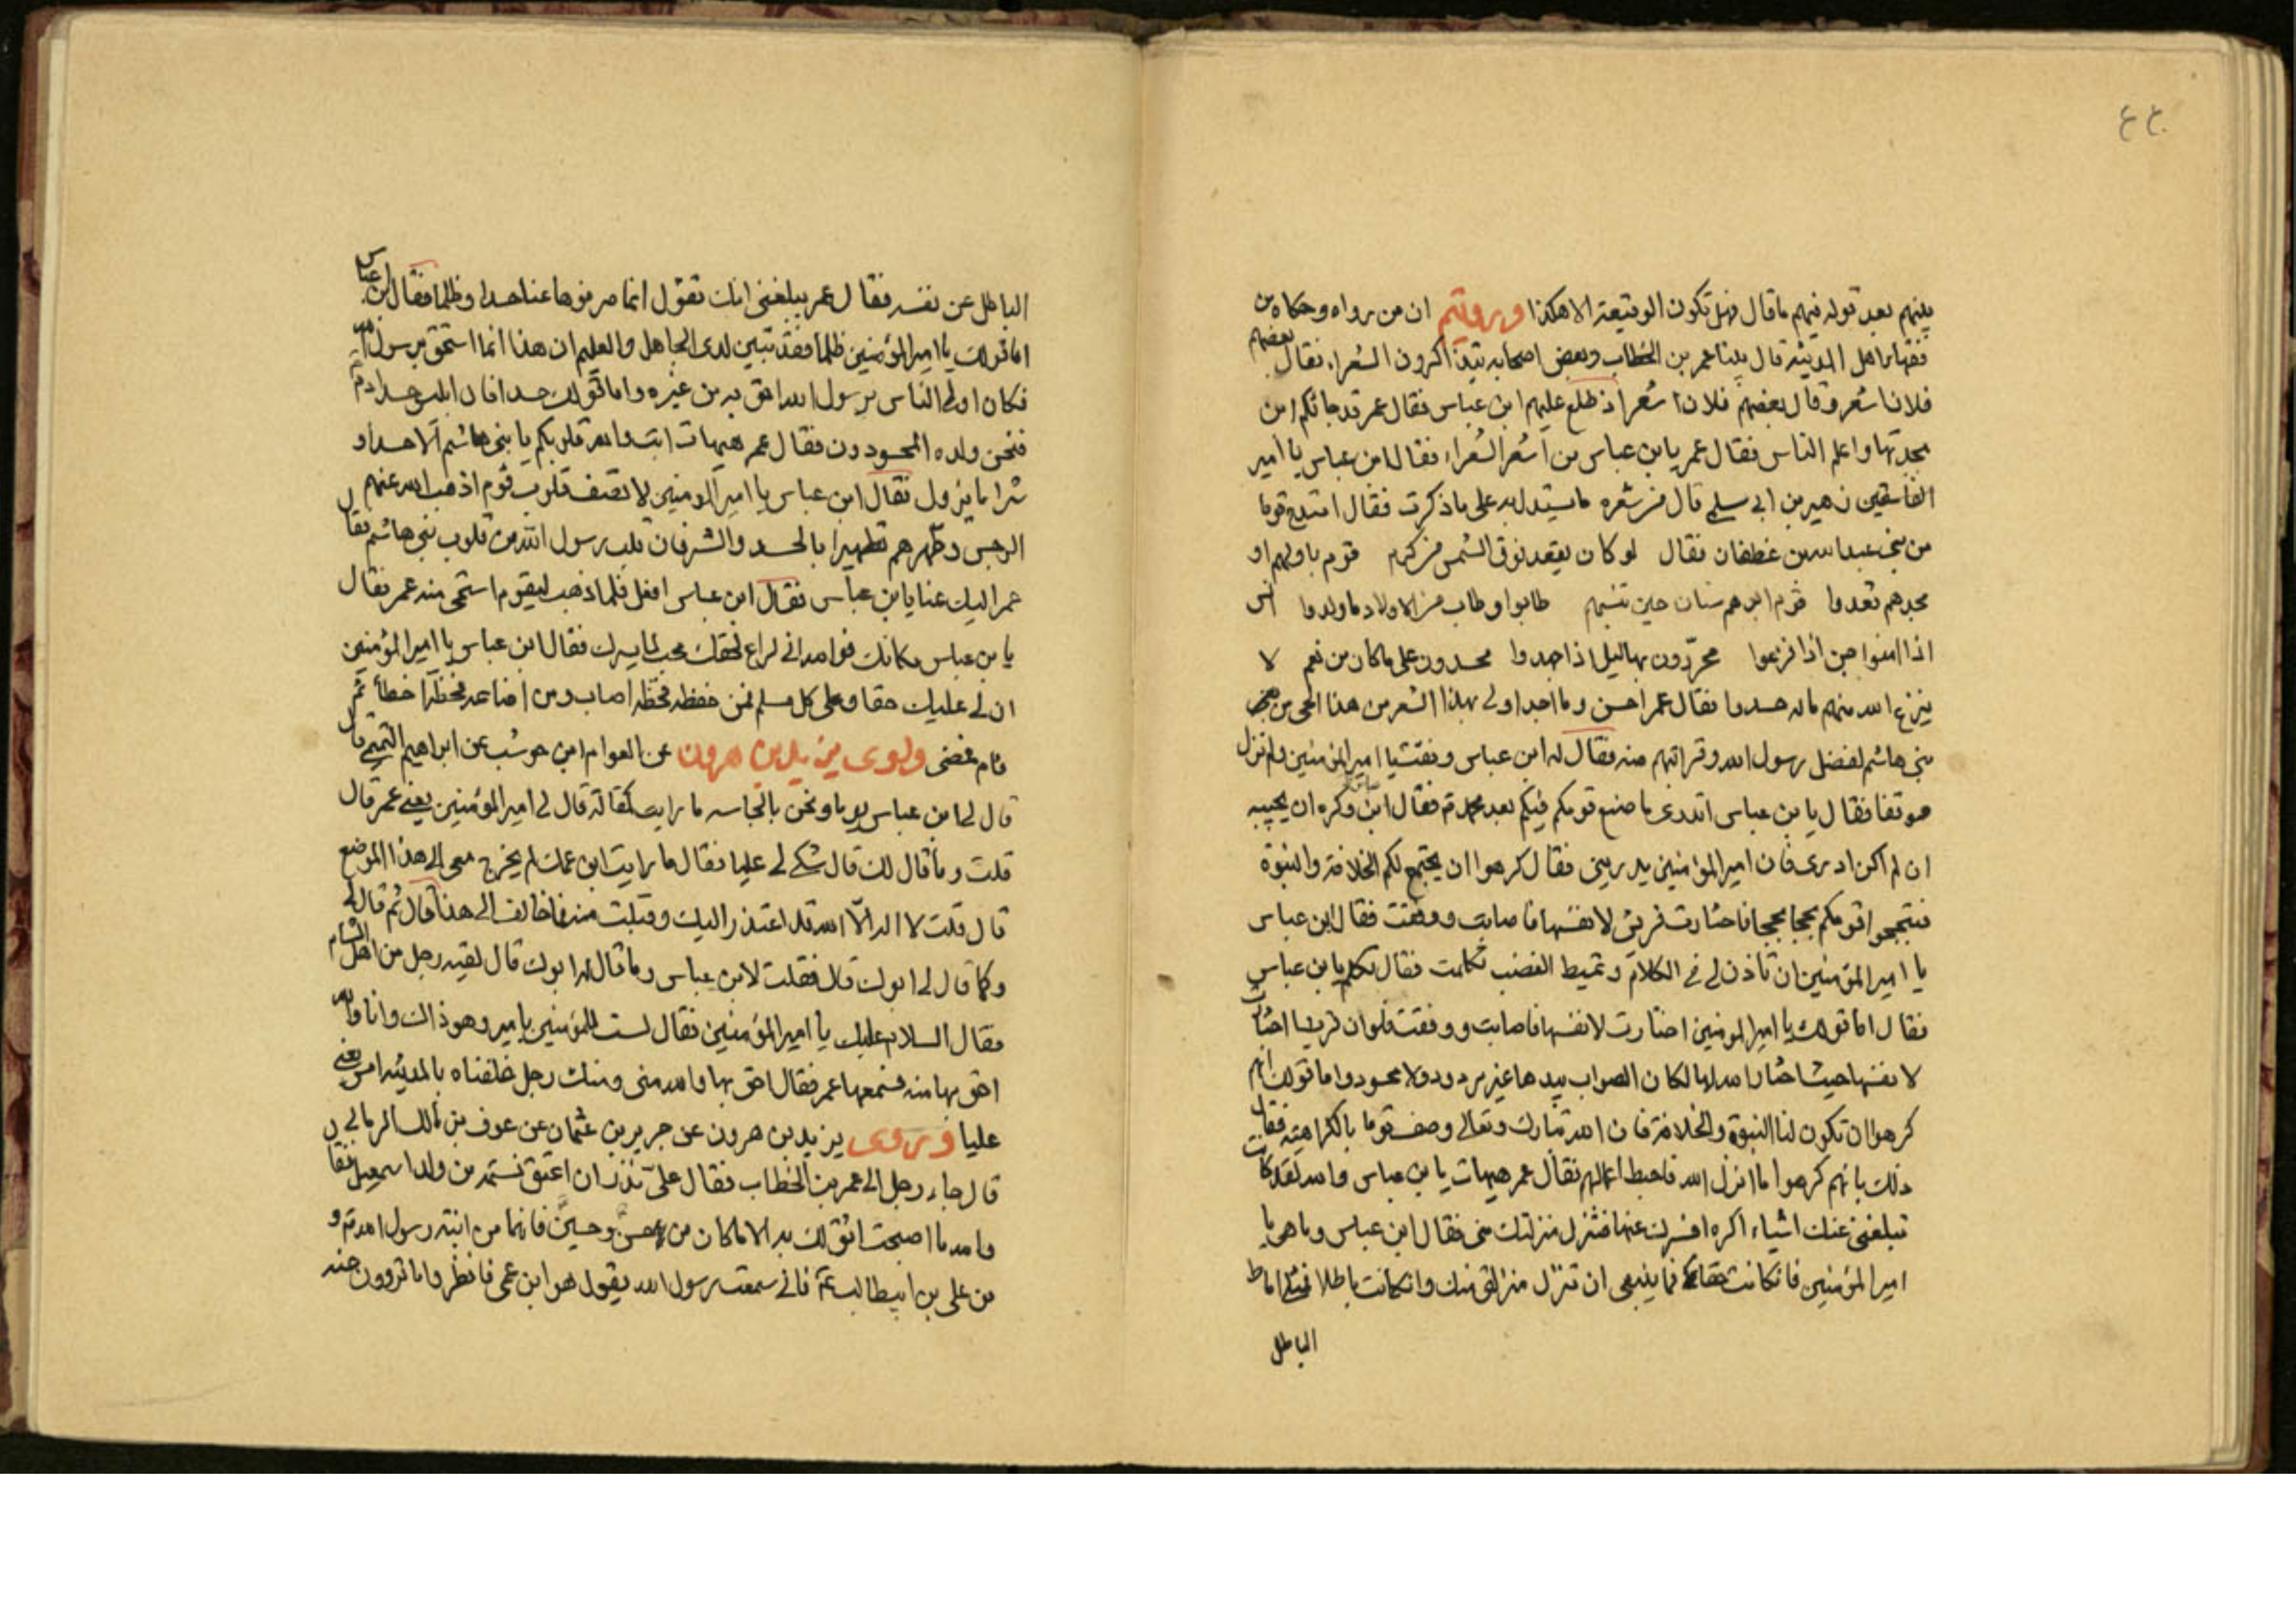 ٤٤
بينهم بعد قوله فيهم ما قال فهل تكون الوقيعة الا هكذا ورويتم ان من رواه وحكاه من
فقهاء اهل المدينة قال بينا عمر بن الخطاب وبعض اصحابه يتذاكرون الشعراء فقال بعضهم
فلانا شعر وقال بعضهم فلان اشعر اذ طلع عليهم ابن عباس فقال عمر قد جائكم ابن
بجدتها واعلم الناس فقال عمر يا بن عباس من اشعر الشعراء فقال ابن عباس يا امير
الفاسقين زهير بن ابي سلمى قال فمن شعره ما ستدل به على ما ذكرت فقال امتدح قوما
من بني عبد الله بن غطفان فقال لو كان يقعد فوق الشمس من كرم قوم باولهم او
مجدهم قعدوا قوم ابوهم سنان حين تنسبهم طابوا وطاب من الاولاد ما ولدوا انس
اذا امنوا جن اذا فزعوا بهاليل اذا جهدوا محسدون على ما كان من نعم لا
ينزع الله منهم ما له حسدوا فقال عمر احسن وما اجد اولى بهذا الشعر من هذا الحي من
بني هاشم لفضل رسول الله وقرابتهم منه فقال له ابن عباس وفقت يا امير المؤمنين ولم تزل
موفقا فقال يا بن عباس اتدرى ما صنع قومكم فيكم بعد محمد فقال ابن عباس وكره ان يجيبه
ان لم اكن ادرى فان امير المؤمنين يدريني فقال كرهوا ان يجتمع لكم الخلافة والنبوة
فتبجحوا قومكم بجحا بجحا فاختارت قريش لانفسها فاصابت ووفقت فقال ابن عباس
يا امير المؤمنين ان تاذن لي في الكلام وتميط الغضب تكلمت فقال تكلم يا بن عباس
فقال اما قولك يا امير المومنين اختارت لانفسها فاصابت ووفقت فلو ان قريشا اختارت
لانفسها حيث اختار الله لها لكان الصواب بيدها غير مردود ولا محسود واما قولك انهم
كرهوا ان تكون لنا النبوة والخلافة فان الله تبارك وتعالى وصف قوما بالكراهية فقال
ذلك بانهم كرهوا ما انزل الله فاحبط اعمالهم فقال عمر هيهات يا بن عباس والله لقد كانت
تبلغني عنك اشياء اكره عنها فتزل منزلتك مني فقال ابن عباس وما هي يا
امير المؤمنين فان كانت حقا فما ينبغي ان تزل منزلتي منك وان كانت باطلا فمثلي اماط
الباطل
الباطل عن نفسه فقال عمر يبلغني انك تقول انما صرفوها عنا حسدا وظلما فقال ابن عباس
اما قولك يا امير المؤمنين ظلما فقد تبين لدى الجاهل والعليم ان هذا انما استحق برسول الله
فكان اولى الناس برسول الله احق به من غيره واما قولك حسدا فان ابليس حسد ادم
فنحن ولده المحسودون فقال عمر هيهات ابت والله قلوبكم يا بني هاشم الا حسدا و
شرا ما يزول فقال ابن عباس يا امير المومنين لا تصف قلوب قوم اذهب الله عنهم
الرجس وطهرهم تطهيرا بالحسد والشر فان قلب رسول الله من قلوب بني هاشم فقال
عمر اليك عنا يا بن عباس فقال ابن عباس افعل فلما ذهب ليقوم استحى منه عمر فقال
يا بن عباس مكانك فوالله اني لراع لحقك محب لما يسرك فقال ابن عباس يا امير المؤمنين
ان لي عليك حقا وعلى كل مسلم فمن حفظه فحظه اصاب ومن اضاعه فحظه اخطأ ثم
قام فمضى وروى يزيد بن هرون عن العوام بن حوشب عن ابراهيم التيمي قال
قال لي ابن عباس يوما ونحن بالجابيه ما رايت كمقالة قال لي امير المؤمنين يعني عمر قال
قلت وما قال لك قال شكى لي عليا فقال ما رايت ابن عمك لم يخرج معي الى هذا الموضع
قال قلت لا اله الا الله قد اعتذر اليك وقبلت منه فما خالف الى هذا قال ثم قال لي
وكما قال لي ابوك قال فقلت لابن عباس وما قال له ابوك قال لقيه رجل من اهل الشام
فقال السلام عليك يا امير المؤمنين فقال لست للمؤمنين بامير وهو ذاك وانا والله
احق بها منه فسمعها عمر فقال احق بها والله مني ومنك رجل خلفناه بالمدينة امس يعني
عليا وروى يزيد بن هرون عن جرير بن عثمان عن عوف بن مالك
قال جاء رجل الى عمر بن الخطاب فقال علي نذر ان اعتق نسمة من ولد اسمعيل فقال
والله ما اصبحت اثق لك به الا ما كان من حسن وحسين فانهما من ابنة رسول الله و
من علي بن ابيطالب فاني سمعت رسول الله يقول هو ابن عمي فانظروا ما تروون عنه